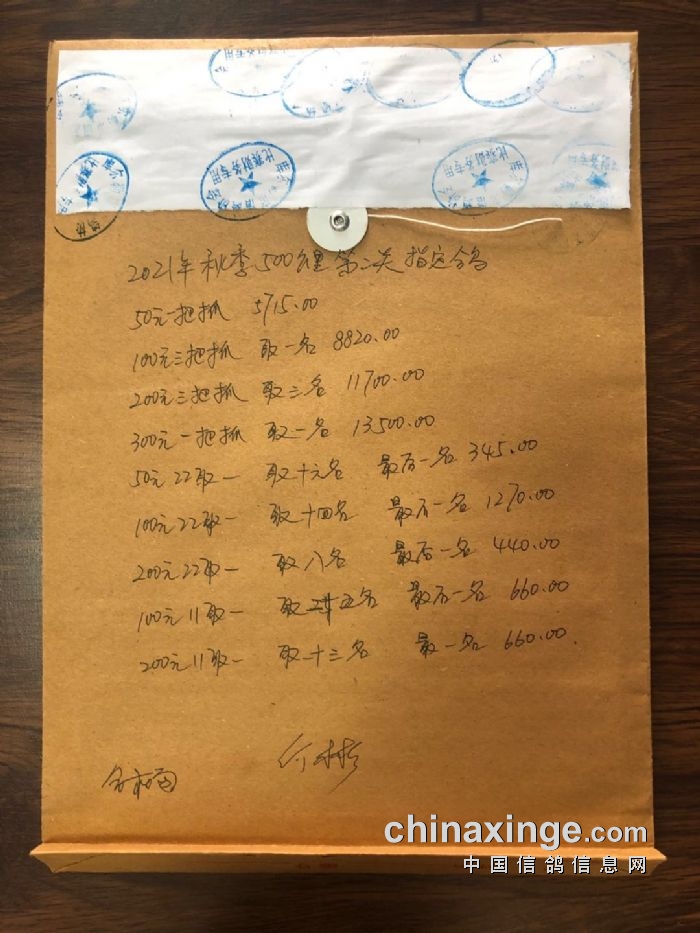 比赛财务专用
比赛财务专用
2021年秋季500公里第二关指定鸽
50元一把抓 5715.00
100元三把抓 取一名 8820.00
200元三把抓 取三名 11700.00
300元一把抓 取一名 13500.00
50元22取一 取十六名 最后一名 345.00
100元22取一 取十四名 最后一名 1270.00
200元22取一 取八名 最后一名 440.00
100元11取一 取 五名 最后一名 660.00
200元11取一 取二十三名 最一名 660.00
chinaxinge.com
中国信鸽信息网